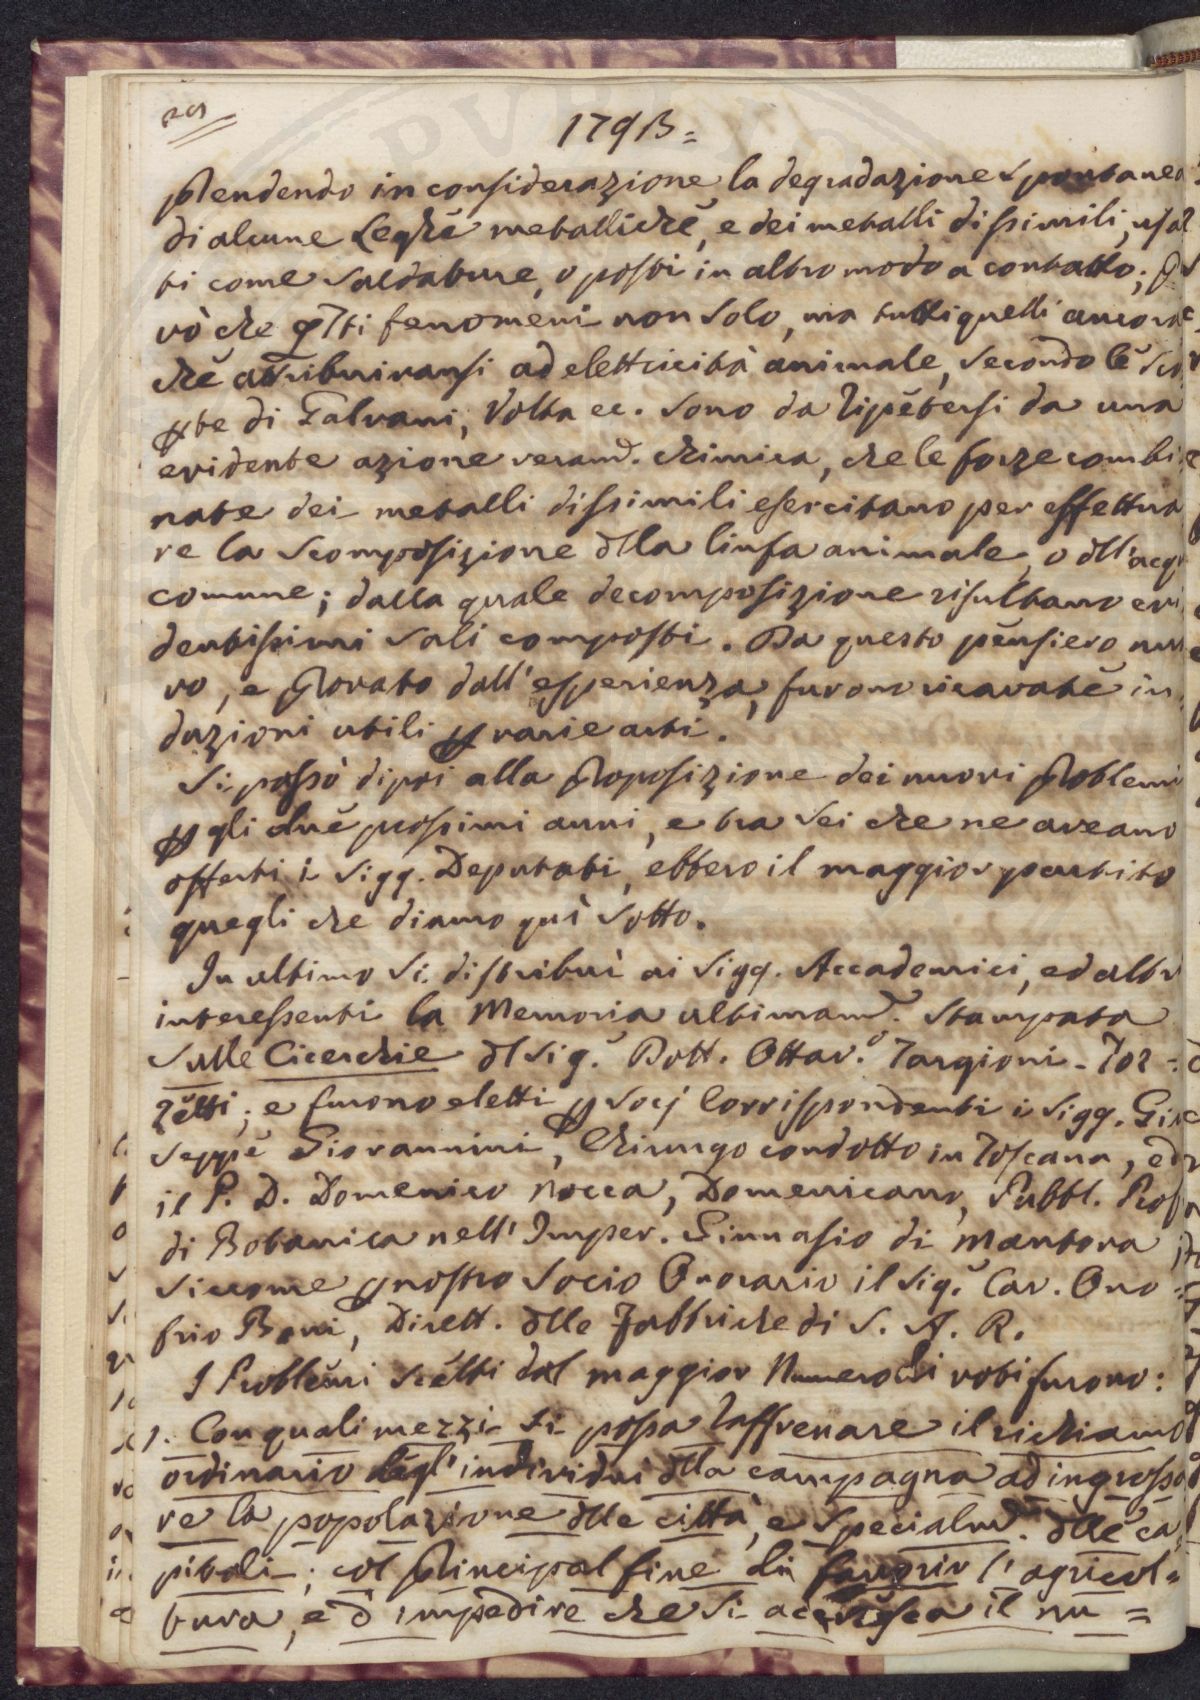 179B=
prendendo in considerazione la degradazione spontanea
di alcune Leghe metalliche, e dei metalli dissimili, usa
ti come saldature, o posti in altro modo a contatto;
vò che qsti fenomeni non solo, ma tutti quelli ancora
che attribuivansi ad elettricità animale, secondo le sco
pte di Galvani, Volta ec. sono da ripetersi da una
evidente azione veramte. chimica, che le forze combi
nate dei metalli dissimili esercitano per effettua
re la scomposizione dlla linfa animale, o dll'acqu
comune; dalla quale decomposizione risultano evi
dentissimi sali composti. Da questo pensiero nuo
vo, e provato dall'esperienza, furono ricavate in
duzioni utili p varie arti.
Si passò dipoi alla proposizione dei nuovi Problemi
p gli due prossimi anni, e tra sei che ne aveano
offerti i Sigg. Deputati, ebbero il maggior partito
quegli che diamo quì sotto.
In ultimo si distribuì ai Sigg. Accademici, ed altr
interessenti la Memoria ultimamte. stampata
sulle Cicerchie dl Sig.r Dott. Ottav.o Targioni-Toz=
zetti; e furono eletti p socj Corrispondenti i Sigg. Giu
seppe Giovannini, Chirurgo condotto in Toscana, ed
il P. D. Domenico Nocca, Domenicano, Pubbl. Prof
di Botanica nell'Imper. Ginnasio di Mantova
siccome p nostro Socio Onorario il Sig.r Cav. Ono=
frio Boni, Dirett. dlle Fabbriche di S. A. R.
I Problemi scelti dal maggior Numero di voti furono:
1. Con quali mezzi si possa raffrenare il richiamo
ordinario degl'individui dlla campagna ad ingrossa
re la popolazione dlle città, e specialmte. dlle ca
pitali; col principal fine di favorir l'agricol=
tura, e d'impedire che si accresca il nu=